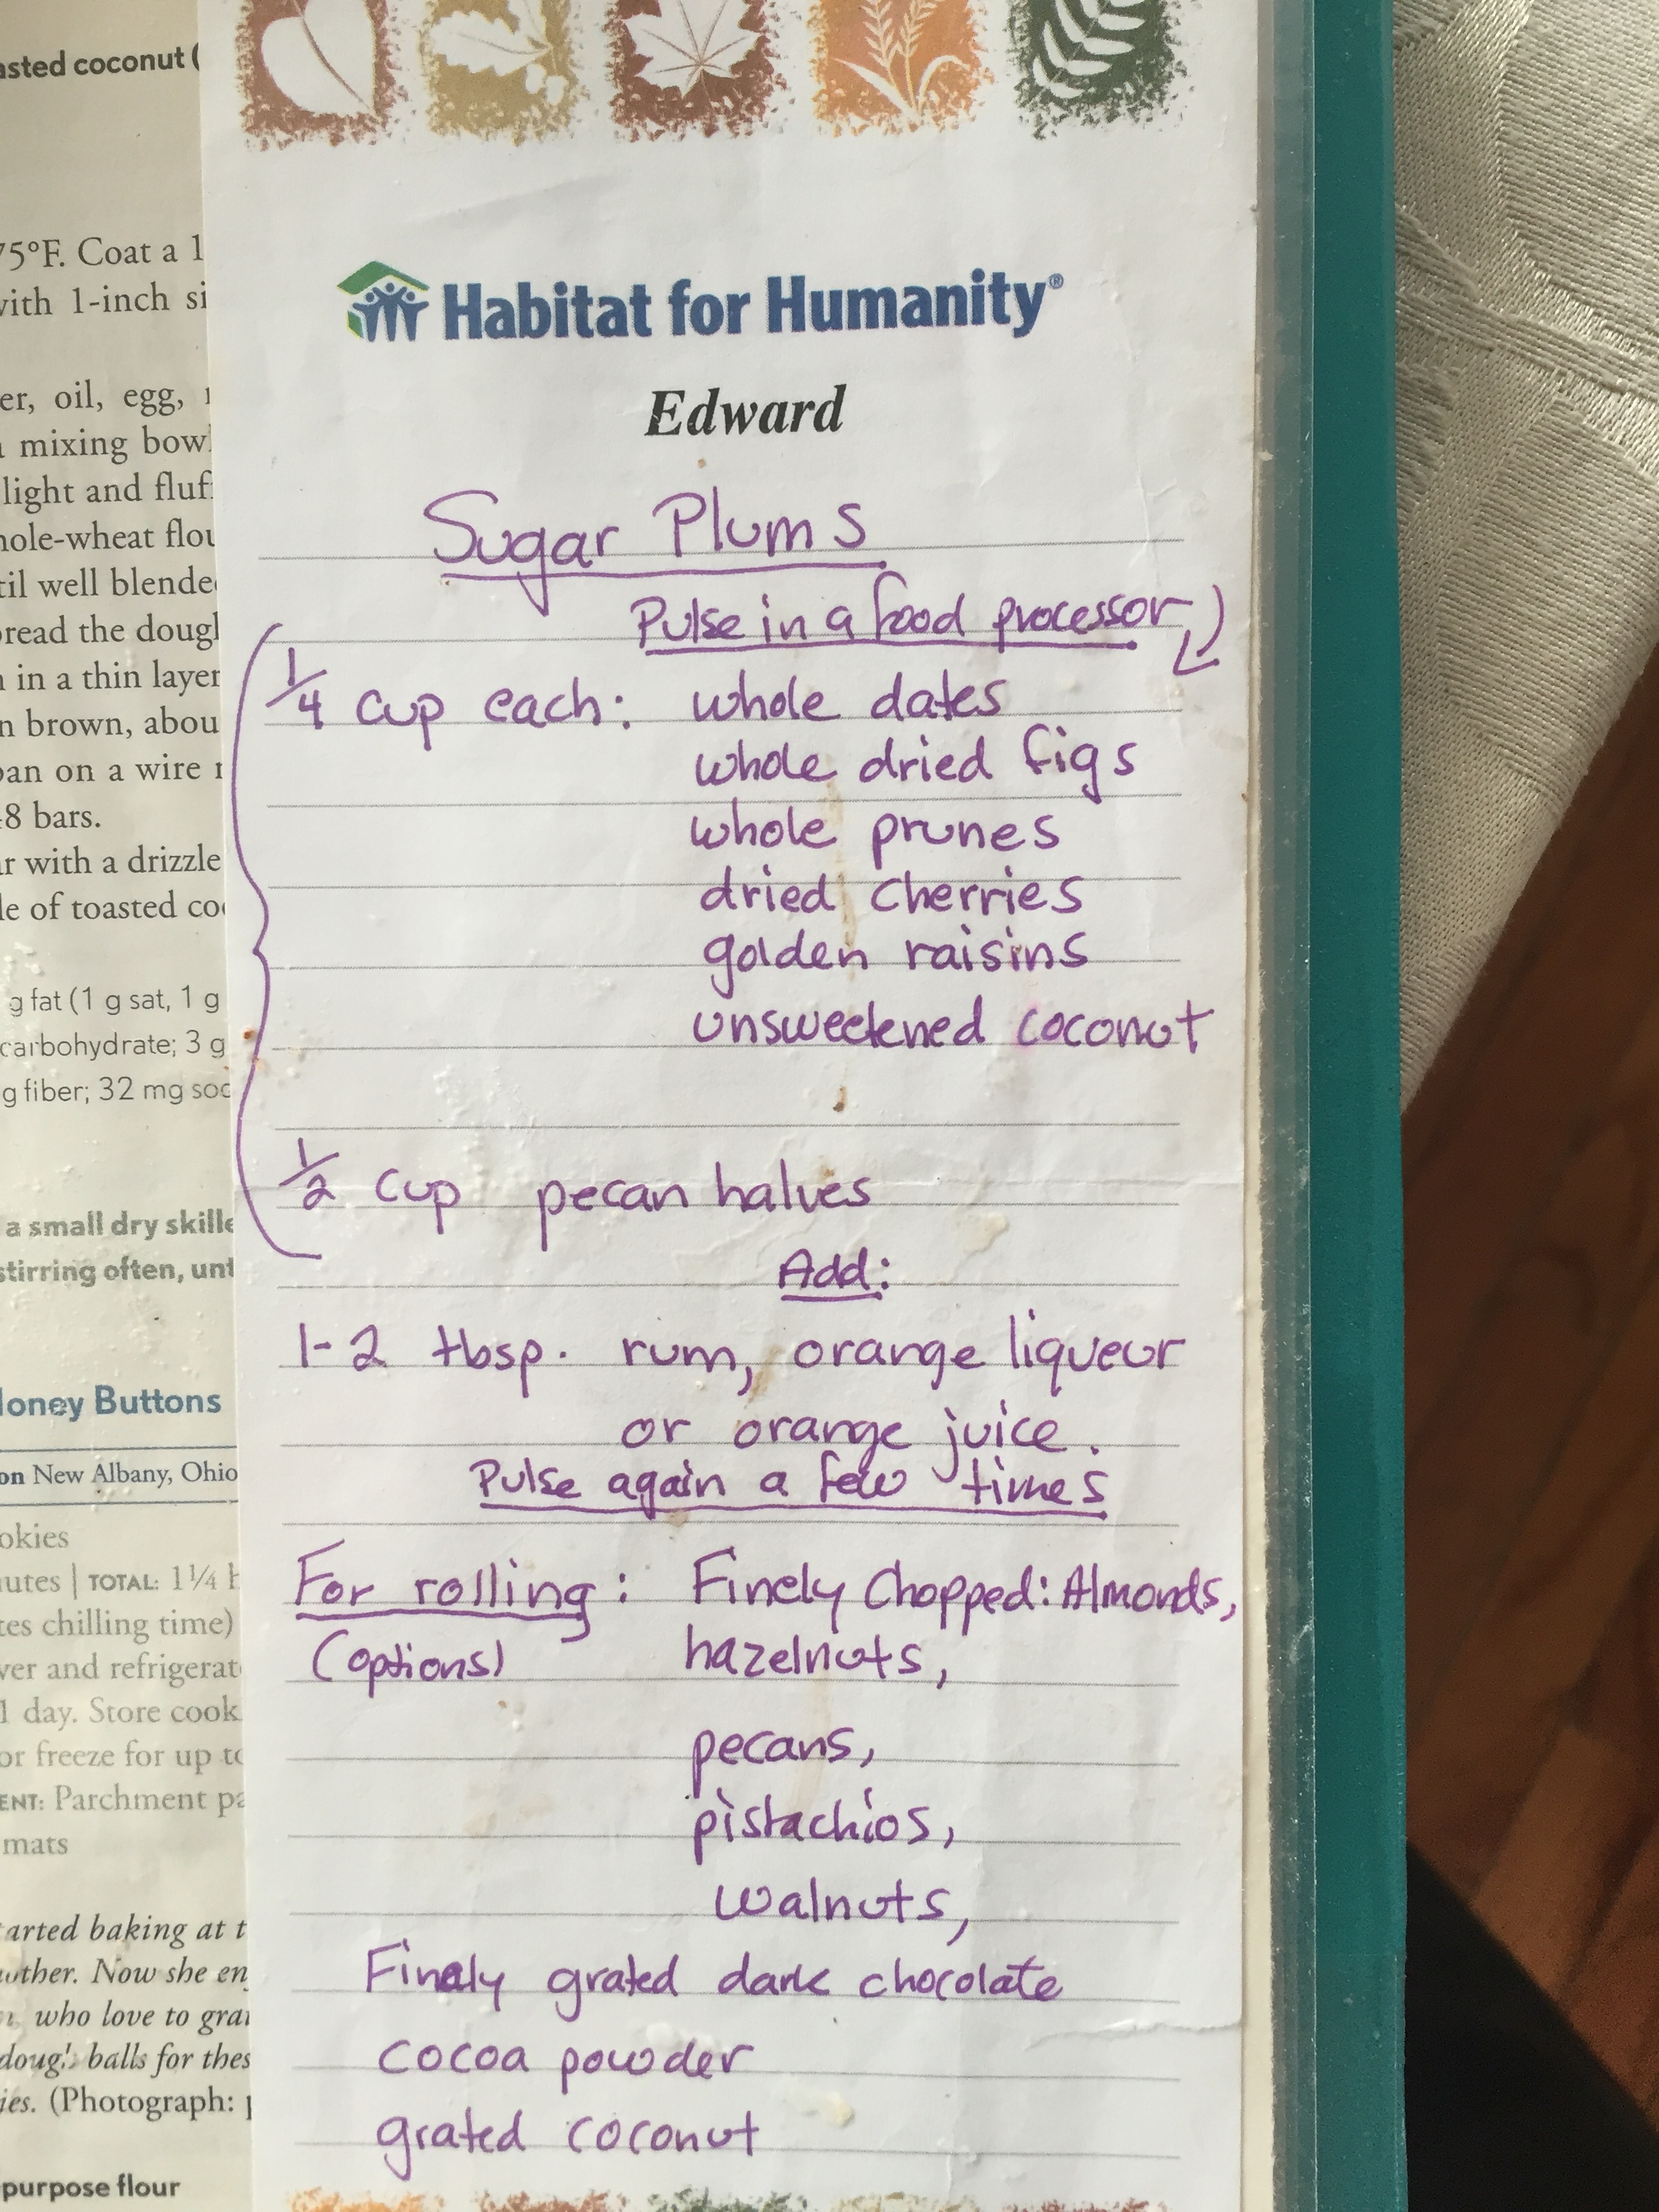 asted coconut (
75°F. Coat a 1
with 1-inch si
er, oil, egg,
mixing bowl
light and fluf
hole-wheat flou
til well blende
pread the dougl
in a thin layer
n brown, abou
pan on a wire r
48 bars.
ar with a drizzle
le of toasted co
g fat (1 g sat, 1 g
carbohydrate; 3 g
g fiber; 32 mg sod
a small dry skille
stirring often, unt
Honey Buttons
on New Albany, Ohio
okies
nutes | TOTAL: 1¼ h
tes chilling time)
ver and refrigerat
1 day. Store cook
or freeze for up to
ENT: Parchment pa
mats
tarted baking at t
other. Now she en
who love to gra
doug balls for thes
ies. (Photograph: p
purpose flour
Habitat for Humanity®
Edward
Sugar Plums
Pulse in a food processor
1/4 cup each: whole dates
whole dried figs
whole prunes
dried cherries
golden raisins
unsweetened coconut
1/2 cup pecan halves
Add:
1-2 tbsp. rum, orange liqueur
or orange juice.
Pulse again a few times
For rolling: Finely Chopped: Almonds,
(options) hazelnuts,
pecans,
pistachios,
walnuts,
Finely grated dark chocolate
cocoa powder
grated coconut